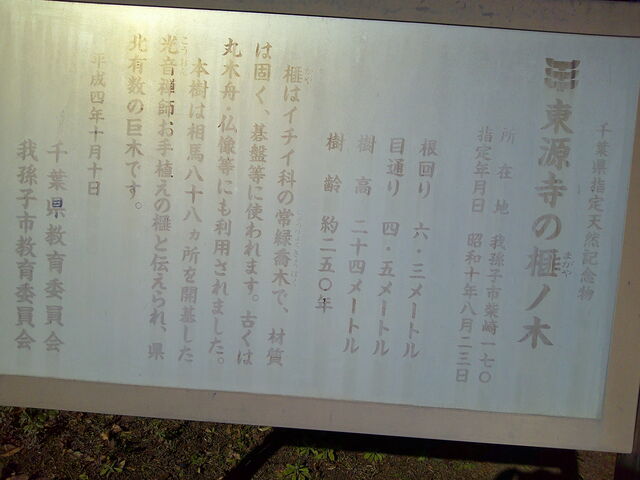 千葉県指定天然記念物
東源寺の榧ノ木
まがや
所在地 我孫子市柴崎一七〇
指定年月日 昭和十年八月二三日
根回り 六・三メートル
目通り 四・五メートル
樹高 二十四メートル
樹齢 約二五〇年
榧はイチイ科の常緑喬木で、材質
は固く、碁盤等に使われます。古くは
丸木舟・仏像等にも利用されました。
本樹は相馬八十八ヵ所を開基した
光音禅師お手植えの榧と伝えられ、県
北有数の巨木です。
平成四年十月十日
千葉県教育委員会
我孫子市教育委員会